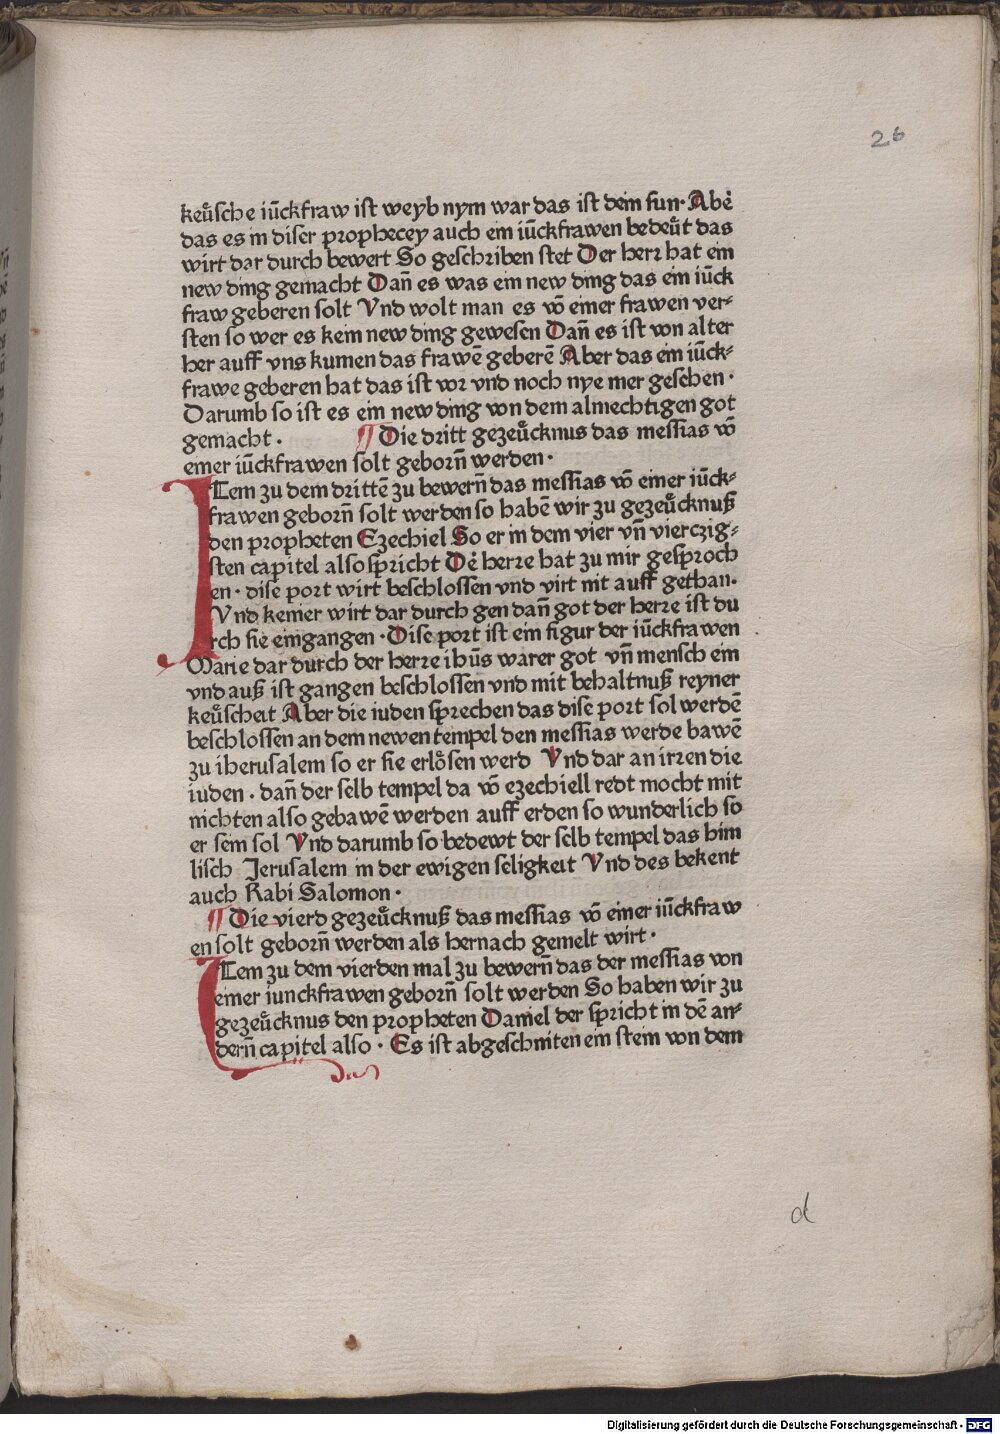 26
keůsche iūckfraw ist weyb nym war das ist dein sun· Abe᷑
das es in diser prophecey auch ein iūckfrawen bedeůt das
wirt dar durch bewert So geschriben stet Der herr hat ein
new ding gemacht Dan̄ es was ein new ding das ein iūck
fraw geberen solt Vnd wolt man es vō einer frawen ver-
sten so wer es kein new ding gewesen Dan̄ es ist von alter
her auff vns kumen das frawē geberē Aber das ein iūck-
frawe geberen hat das ist vor vnd noch nye mer geschen·
Darumb so ist es ein new ding von dem almechtigen got
gemacht· ¶ Die dritt gezeůcknus das messias vō
einer iūckfrawen solt geborn̄ werden·
ITem zu dem drittē zu bewern̄ das messias vō einer iūck-
frawen geborn̄ solt werden so habē wir zu gezeůcknuß
den propheten Ezechiel So er in dem vier vn̄ vierczig-
sten capitel also spricht De᷑ herre hat zu mir gesproch
en· dise port wirt beschlossen vnd virt nit auff gethan·
Vnd keiner wirt dar durch gen dan̄ got der herre ist du
rch sie eingangen· Dise port ist ein figur der iūckfrawen
Marie dar durch der herre ihūs warer got vn̄ mensch ein
vnd auß ist gangen beschlossen vnd mit behaltnuß reyner
keůscheit Aber die iuden sprechen das dise port sol werdē
beschlossen an dem newen tempel den messias werde bawē
zu iherusalem so er sie erlösen werd Vnd dar an irren die
iuden· dan̄ der selb tempel da vō ezechiell redt mocht mit
nichten also gebawē werden auff erden so wunderlich so
er sein sol Vnd darumb so bedewt der selb tempel das him
lisch Jerusalem in der ewigen seligkeit Vnd des bekent
auch Rabi Salomon·
¶ Die vierd gezeůcknuß das messias vō einer iūckfraw
en solt geborn̄ werden als hernach gemelt wirt·
ITem zu dem vierden mal zu bewern̄ das der messias von
einer iunckfrawen geborn̄ solt werden So haben wir zu
gezeůcknus den propheten Daniel der spricht in dē an-
dern̄ capitel also· Es ist abgeschniten ein stein von dem
d
Digitalisierung gefördert durch die Deutsche Forschungsgemeinschaft · DFG